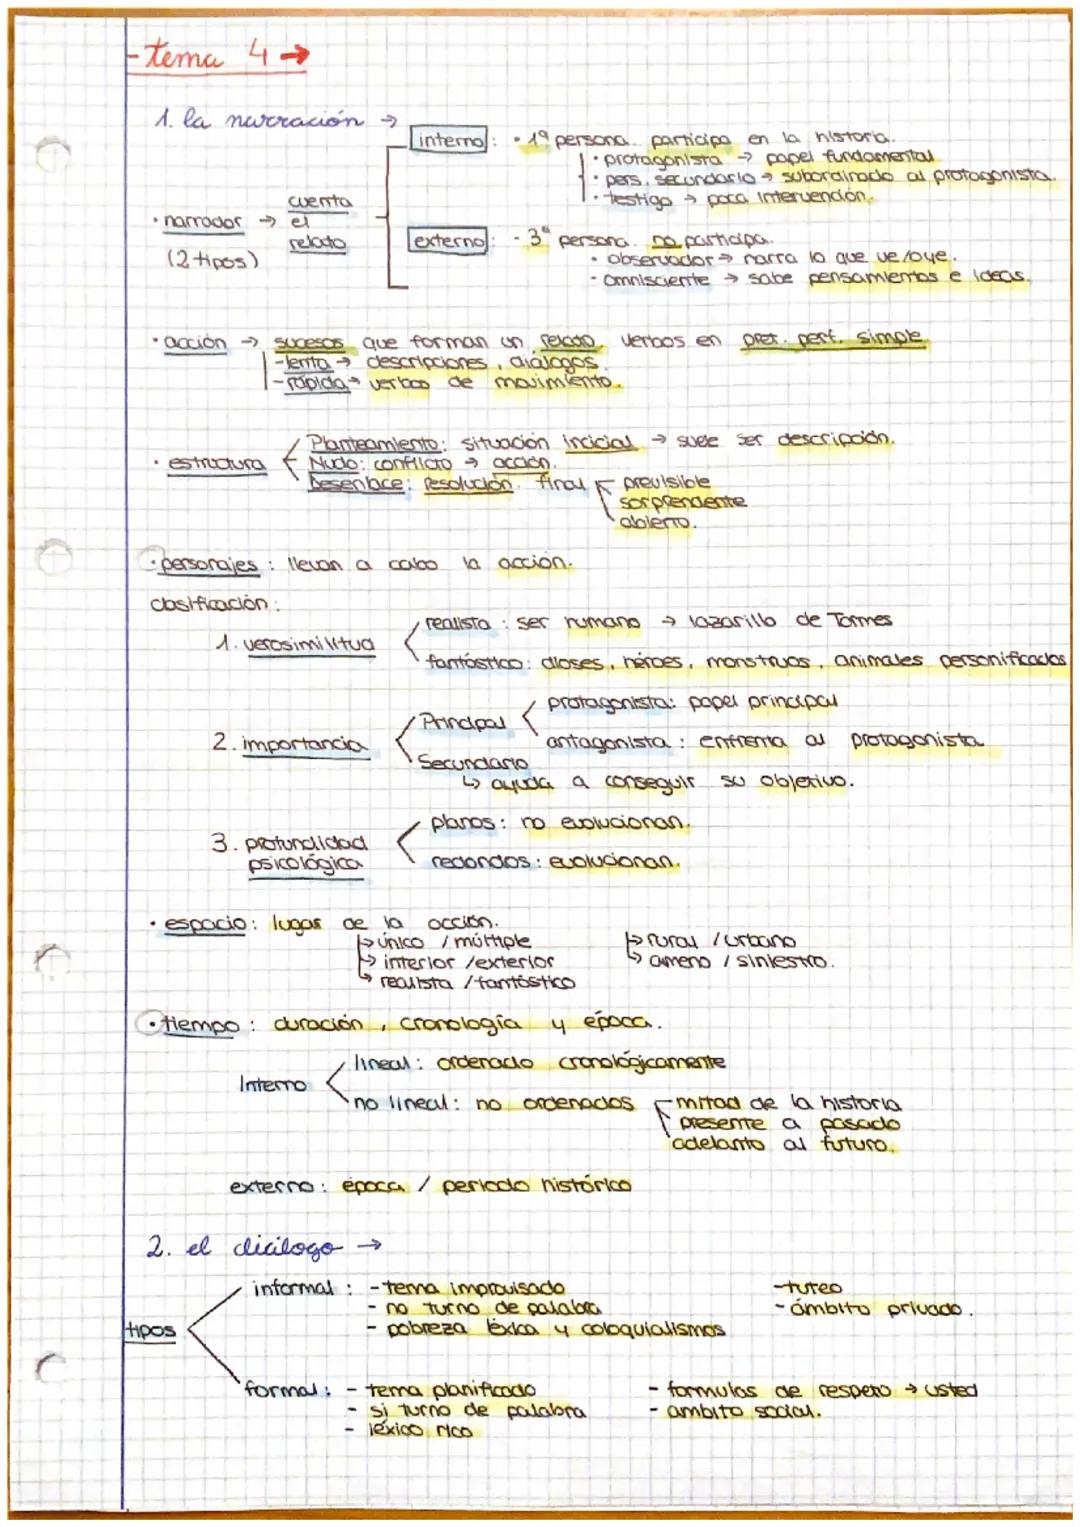 - tema 4 →
1. la narración →
interno: · 1ª persona. participa en la historia.
· protagonista → papel fundamental
· pers. secundario → subordinado al protagonista.
· testigo → poca intervención.
· narrador → cuenta el relato
(2 tipos)
externo: - 3ª persona. no participa.
· observador → narra lo que ve/oye.
· omnisciente → sabe pensamientos e ideas.
· acción → sucesos que forman un relato. verbos en pret. perf. simple.
- lenta → descripciones, diálogos.
- rápida → verbos de movimiento.
· estructura
Planteamiento: situación inicial → suele ser descripción.
Nudo: conflicto → acción.
Desenlace: resolución. final
previsible
sorprendente
abierto.
· personajes: llevan a cabo la acción.
clasificación:
1. verosimilitud
realista: ser humano → lazarillo de Tormes
fantástico: dioses, héroes, monstruos, animales personificados
2. importancia
Principal
protagonista: papel principal
antagonista: enfrenta al protagonista
Secundario
↳ ayuda a conseguir su objetivo.
3. profundidad
psicológica
planos: no evolucionan.
redondos: evolucionan.
· espacio: lugar de la acción.
↳ único / múltiple
↳ interior / exterior
↳ realista / fantástico
↳ rural / urbano
↳ ameno / siniestro.
· tiempo: duración, cronología y época.
Interno
lineal: ordenado cronológicamente
no lineal: no ordenados
mitad de la historia
presente a pasado
adelanto al futuro.
externo: época / periodo histórico
2. el diálogo →
tipos
informal: - tema improvisado
- no turno de palabra
- pobreza léxica y coloquialismos
- tuteo
- ámbito privado.
formal: - tema planificado
- si turno de palabra
- léxico rico
- formulas de respeto → usted
- ambito social.